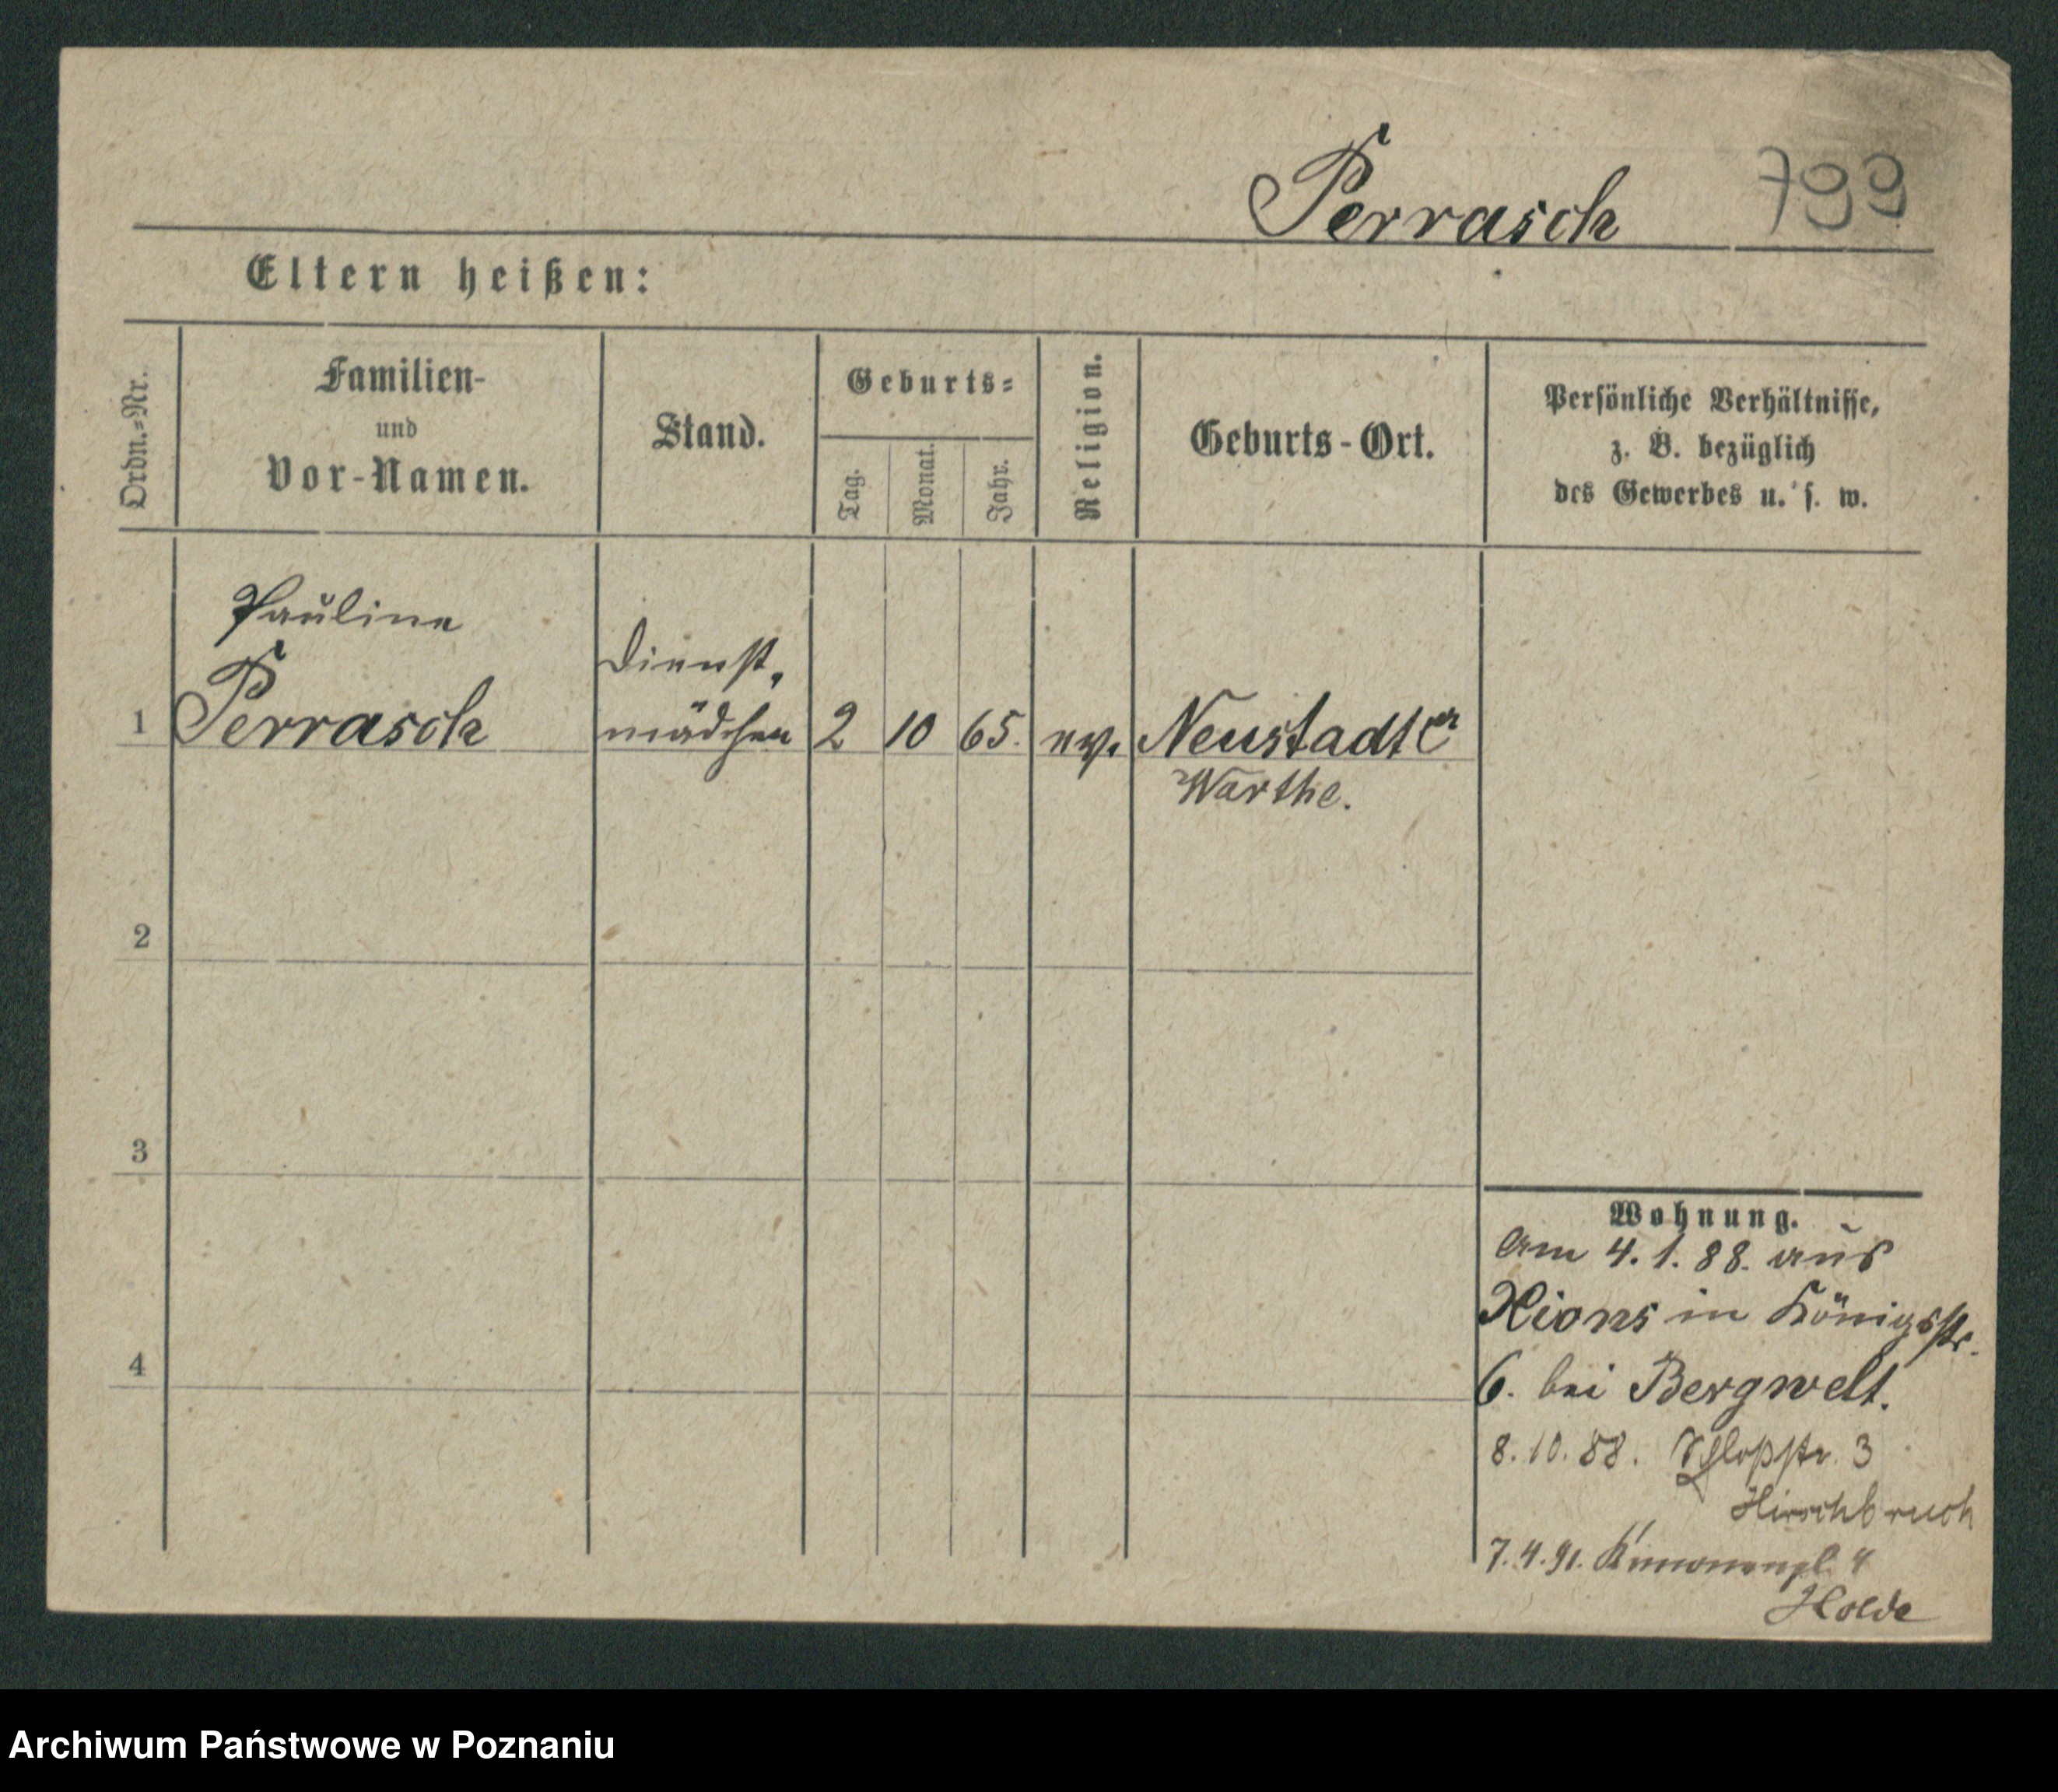 Perrasch 799
Eltern heißen:
Ordn.-Nr.
Familien-
und
Vor-Namen.
Stand.
Geburts=
Tag.
Monat.
Jahr.
Religion.
Geburts-Ort.
Persönliche Verhältnisse,
z. B. bezüglich
des Gewerbes u. s. w.
Pauline
Dienst-
1 Perrasch mädchen 2 10 65. ev. Neustadt a
Warthe.
2
3
4
Wohnung.
Am 4. 1. 88. aus
Xions in Königsstr.
6. bei Bergwelt.
8. 10. 88. Schloßstr. 3
Hirschbruch
7. 4. 91. 4
Holde
Archiwum Państwowe w Poznaniu